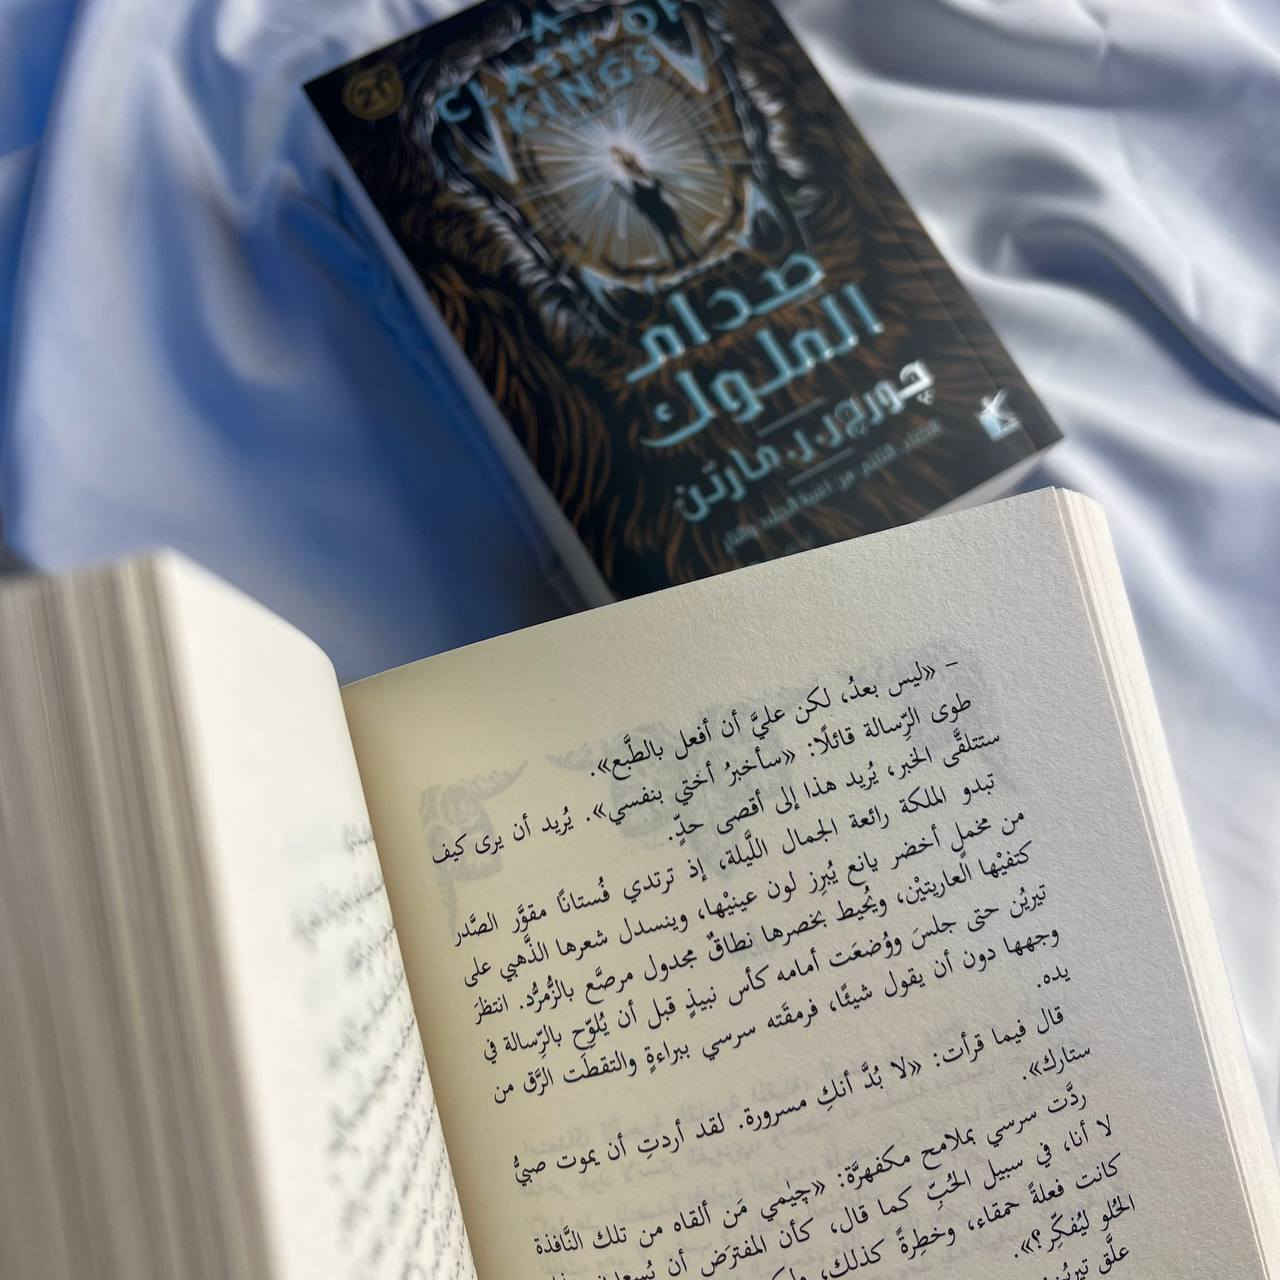 21
A
CLASH OF
KINGS
صدام
الملوك
چورچ ر. ر. مارتن
– «ليس بعدُ، لكن عليَّ أن أفعل بالطَّبع».
طوى الرِّسالة قائلًا: «سأخبرُ أختي بنفسي». يُريد أن يرى كيف
ستتلقَّى الخبر، يُريد هذا إلى أقصى حدٍّ.
تبدو الملكة رائعة الجمال اللَّيلة، إذ ترتدي فُستانًا مقوَّر الصَّدر
من مخملٍ أخضر يانع يُبرِز لون عينيْها، وينسدل شعرها الذَّهبي على
كتفيْها العاريتيْن، ويُحيط بخصرها نطاقٌ مجدول مرصَّع بالزُّمرُّد. انتظرَ
تيريُن حتى جلسَ ووُضعَت أمامه كأس نبيذٍ قبل أن يُلوِّح بالرِّسالة في
وجهها دون أن يقول شيئًا، فرمقَته سرسي ببراءةٍ والتقطَت الرَّق من
يده.
قال فيما قرأت: «لا بُدَّ أنكِ مسرورة. لقد أردتِ أن يموت صبيُّ
ستارك».
ردَّت سرسي بملامح مكفهرَّة: «چيمي مَن ألقاه من تلك النَّافذة
لا أنا، في سبيل الحُبِّ كما قال، كأن المفترَض أن يُسعدني
كانت فعلةً حمقاء، وخطِرةً كذلك،
الحُلو ليُفكِّر؟».
علَّق تيريُن